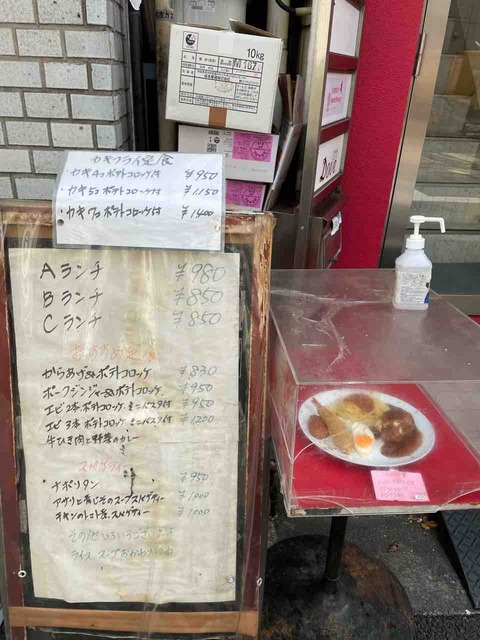 10kg
カキフライ定食
・カキ4コポテトコロッケ付 ¥950
・カキ5コポテトコロッケ付 ¥1150
・カキ7コポテトコロッケ付 ¥1400
Aランチ ¥980
Bランチ ¥850
Cランチ ¥850
おすすめ定食
からあげ&ポテトコロッケ ¥830
ポークジンジャー&ポテトコロッケ ¥950
エビ2本ポテトコロッケ、ミニパスタ付 ¥950
エビ3本ポテトコロッケ、ミニパスタ付 ¥1200
牛ひき肉と野菜のカレー
スパゲティ
・ナポリタン ¥950
アサリと青じそのスープスパゲティー ¥1,000
チキンのトマト煮、スパゲティー ¥1000
その他いろいろございます
ライス スープおかわり